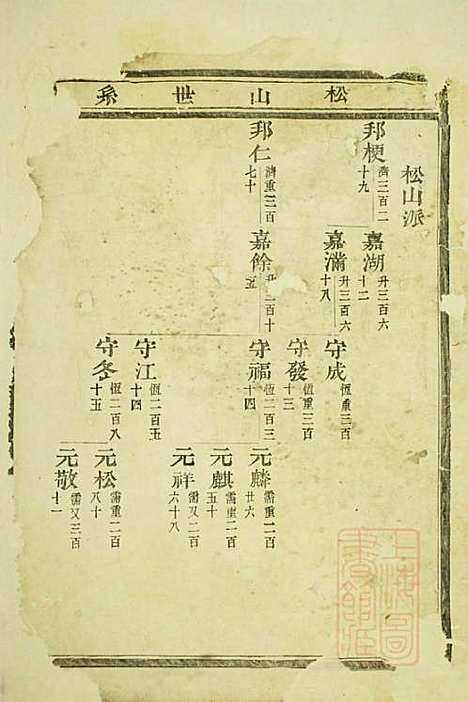 松山世系
松山派
邦梗
濟三百二
十九
邦仁
濟重三百
七十
嘉湖
升三百六
十二
嘉滿
升三百六
十八
嘉餘
升二百十
五
守成
恆重三百
守發
恆重三百
十三
守福
恆二百三
十四
守江
恆二百五
十四
守冬
恆二百八
十五
元麟
需重二百
廿六
元麒
需重二百
五十
元祥
需又二百
六十八
元松
需重二百
八十
元敬
需又三百
十一
上海圖
書館藏